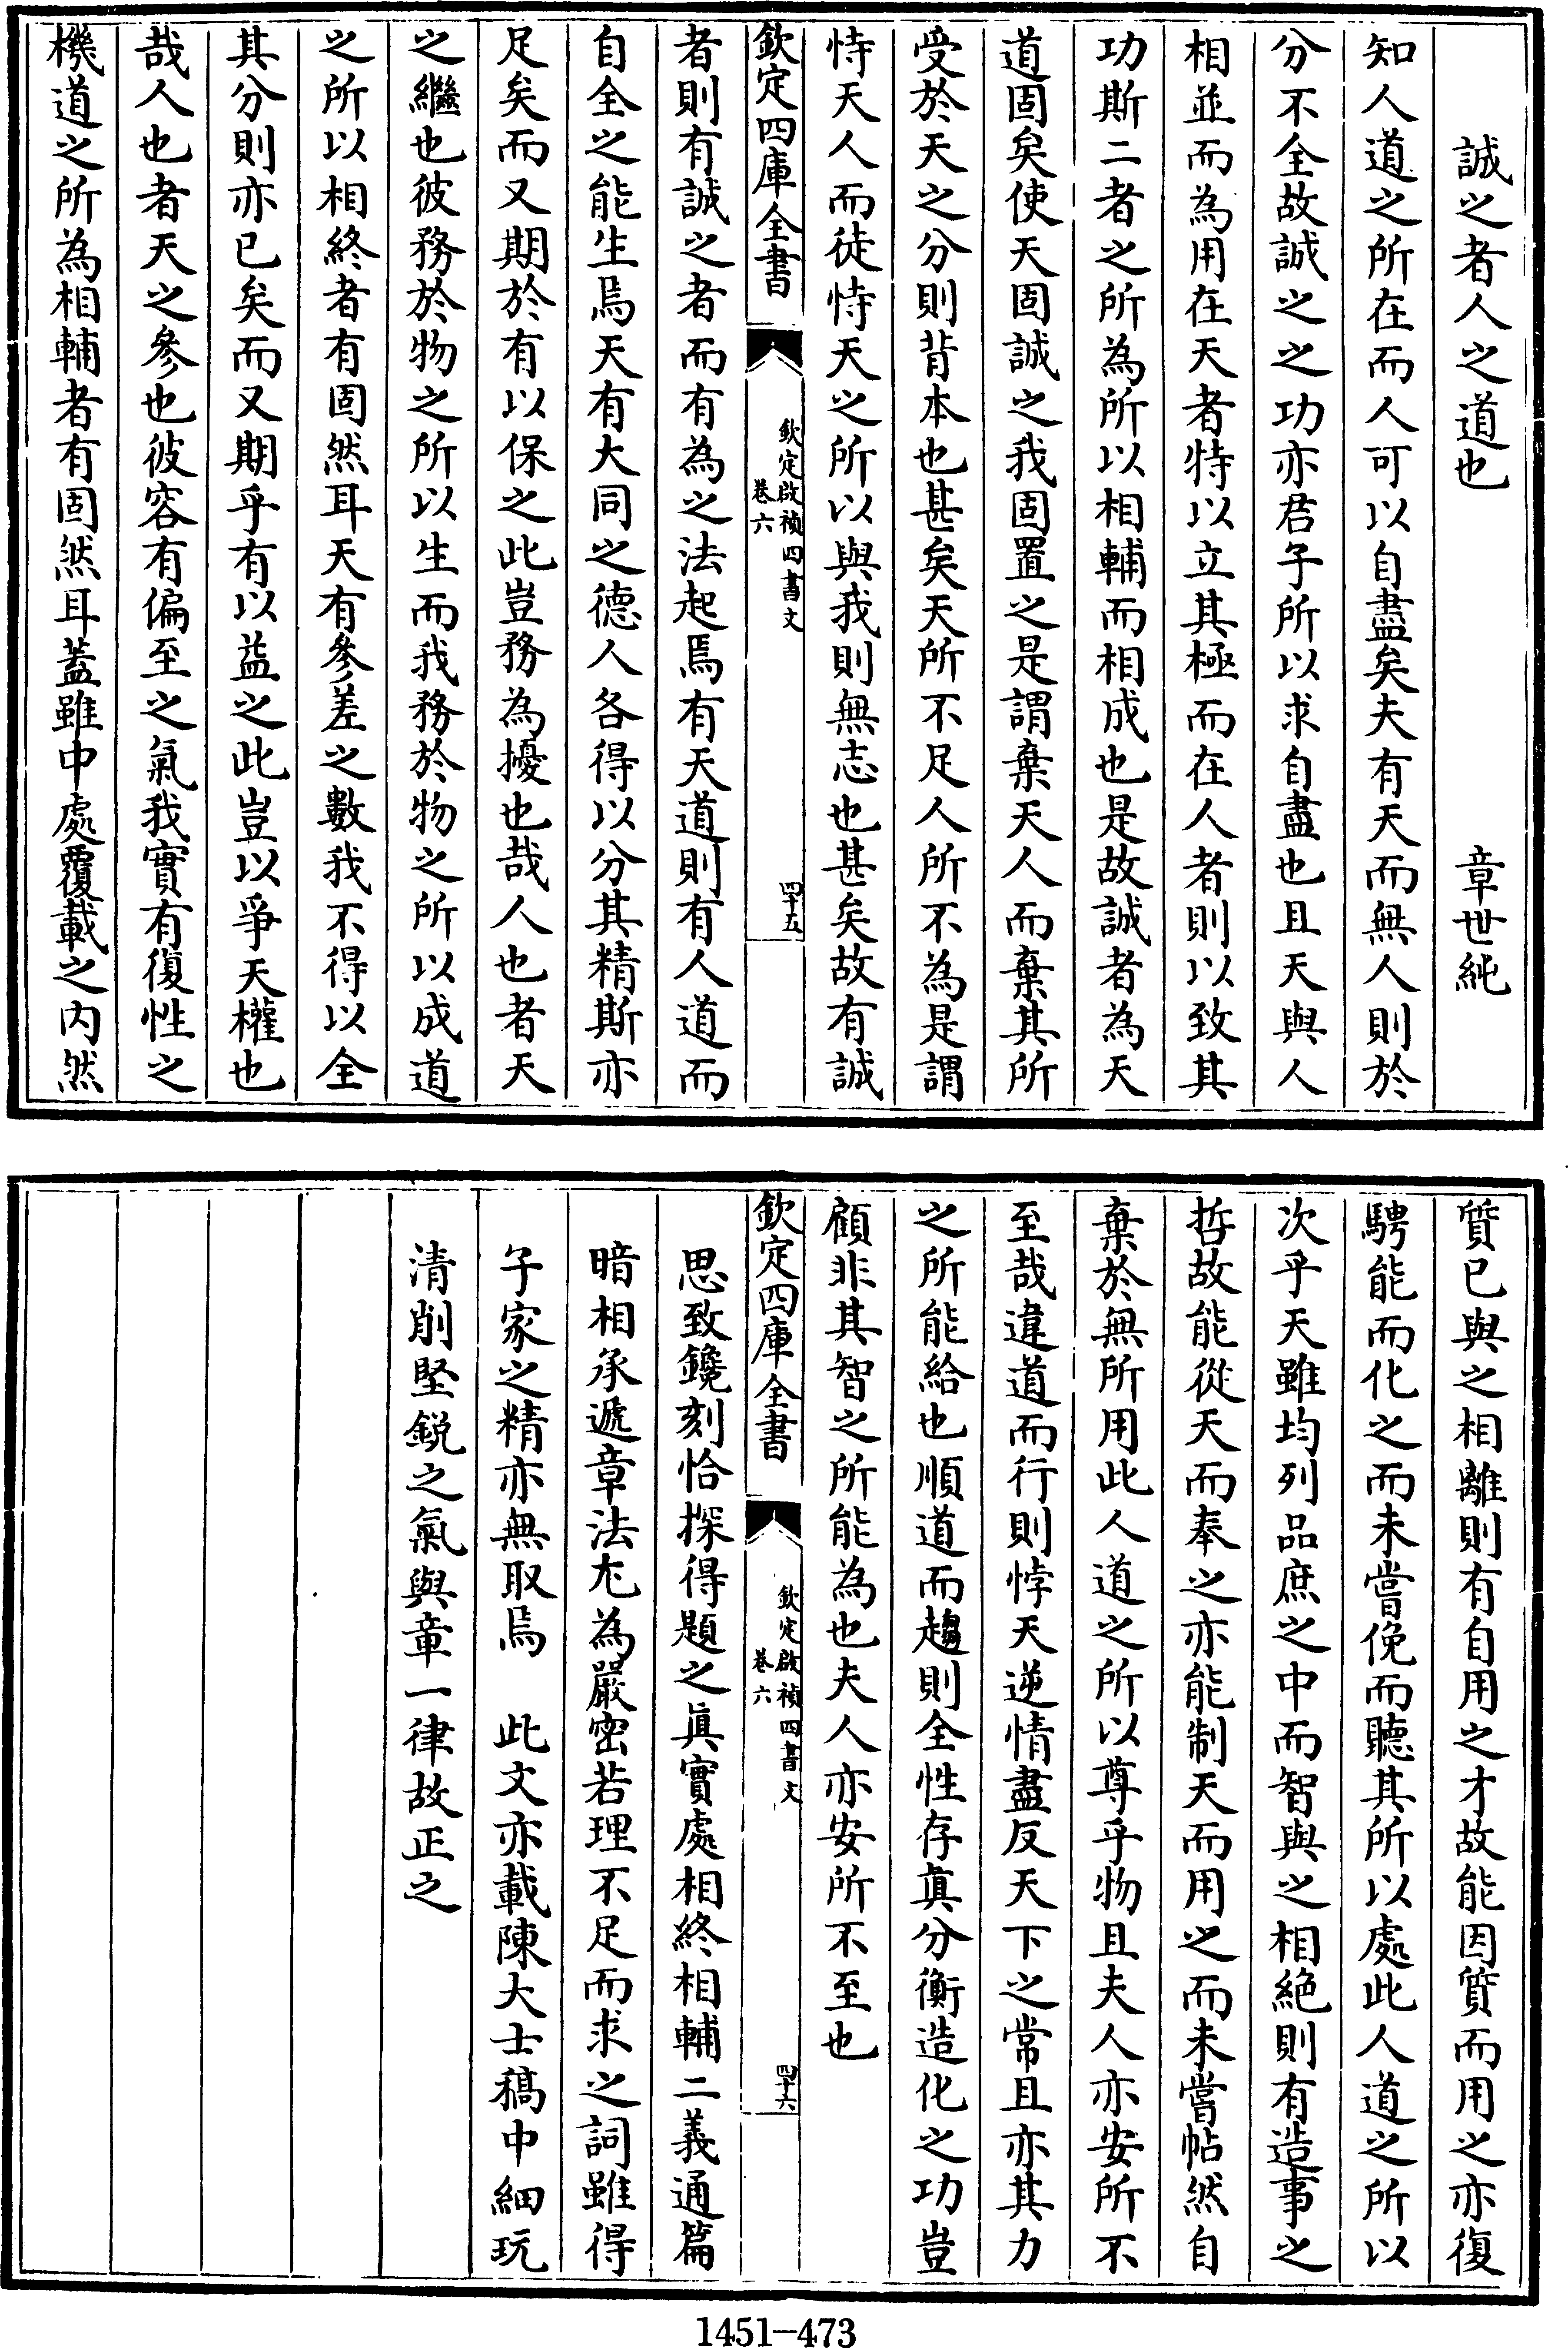 誠之者人之道也　章世純
知人道之所在而人可以自盡矣夫有天而無人則於
分不全故誠之之功亦君子所以求自盡也且天與人
相並而為用在天者特以立其極而在人者則以致其
功斯二者之所為所以相輔而相成也是故誠者為天
道固矣使天固誠之我固置之是謂棄天人而棄其所
受於天之分則背本也甚矣天所不足人所不為是謂
恃天人而徒恃天之所以與我則無志也甚矣故有誠
欽定四庫全書
欽定啟禎四書文
卷六
四十五
者則有誠之者而有為之法起焉有天道則有人道而
自全之能生焉天有大同之德人各得以分其精斯亦
足矣而又期於有以保之此豈務為擾也哉人也者天
之繼也彼務於物之所以生而我務於物之所以成道
之所以相終者有固然耳天有參差之數我不得以全
其分則亦已矣而又期乎有以益之此豈以爭天權也
哉人也者天之參也彼容有偏至之氣我實有復性之
機道之所為相輔者有固然耳蓋雖中處覆載之內然
質已與之相離則有自用之才故能因質而用之亦復
騁能而化之而未嘗俛而聽其所以處此人道之所以
次乎天雖均列品庶之中而智與之相絶則有造事之
哲故能從天而奉之亦能制天而用之而未嘗帖然自
棄於無所用此人道之所以尊乎物且夫人亦安所不
至哉違道而行則悖天逆情盡反天下之常且亦其力
之所能給也順道而趨則全性存眞分衡造化之功豈
顧非其智之所能為也夫人亦安所不至也
欽定四庫全書
欽定啟禎四書文
卷六
四十六
思致鑱刻恰探得題之眞實處相終相輔二義通篇
暗相承遞章法尤為嚴密若理不足而求之詞雖得
子家之精亦無取焉　此文亦載陳大士稿中細玩
清削堅鋭之氣與章一律故正之
1451-473